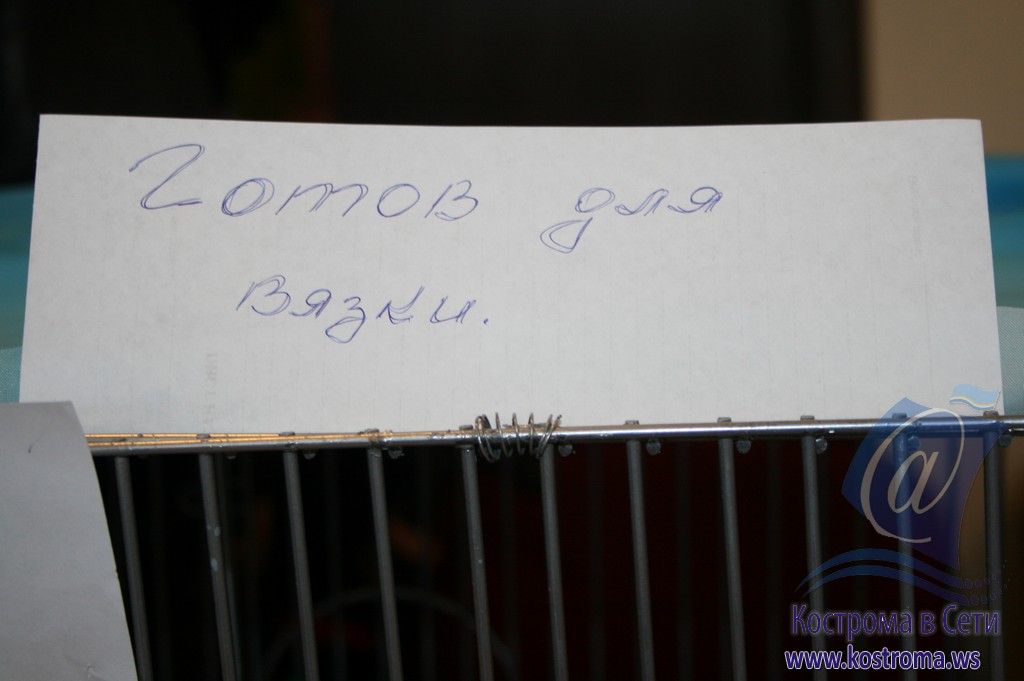 Готов для
вязки.
Кострома в Сети
www.kostroma.ws